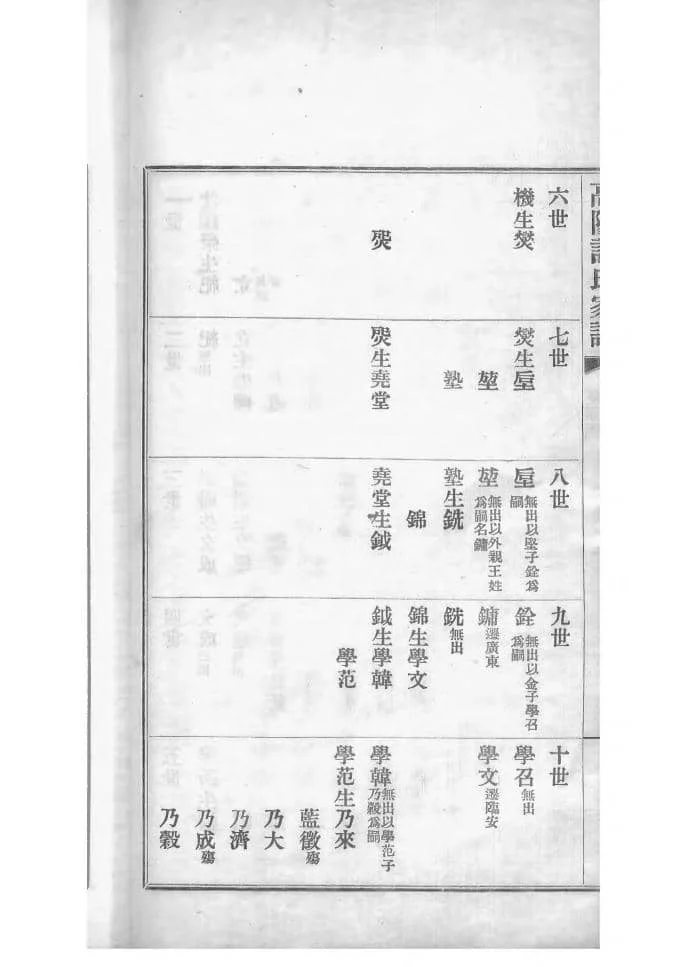 高陽許氏家譜
六世
機生爕
煚
七世
爕生垕
堃
塾
煚生堯堂
八世
垕無出以堅子銓為嗣
堃無出以外親王姓為嗣名鏞
塾生銑
錦
堯堂生鉞
九世
銓無出以金子學召為嗣
鏞遷廣東
銑無出
錦生學文
鉞生學韓
學范
十世
學召無出
學文遷臨安
學韓無出以學范子乃穀為嗣
學范生乃來
藍徵殤
乃大
乃濟
乃成殤
乃穀